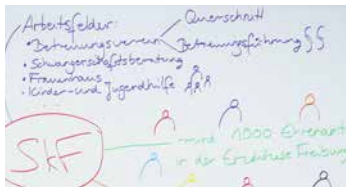 Arbeitsfelder:
Querschnitt
• Betreuungsverein
Betreuungsführung §§
• Schwangerschaftsberatung
• Frauenhaus
• Kinder- und Jugendhilfe
SkF
rund 1000 Ehrenamt
in der Erzdiözese Freiburg